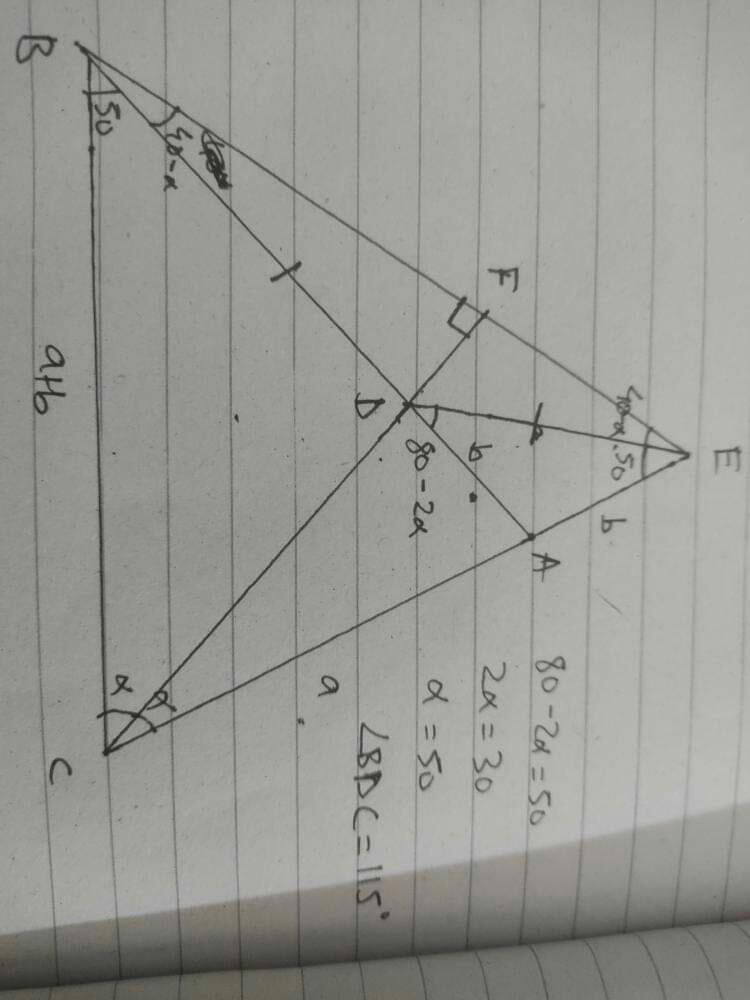 E
40-α
50
b
F
A
b
80-2α
D
80-2α=50
2α=30
α=50
∠BDC=115°
a
40-α
50
α
α
B
a+b
C